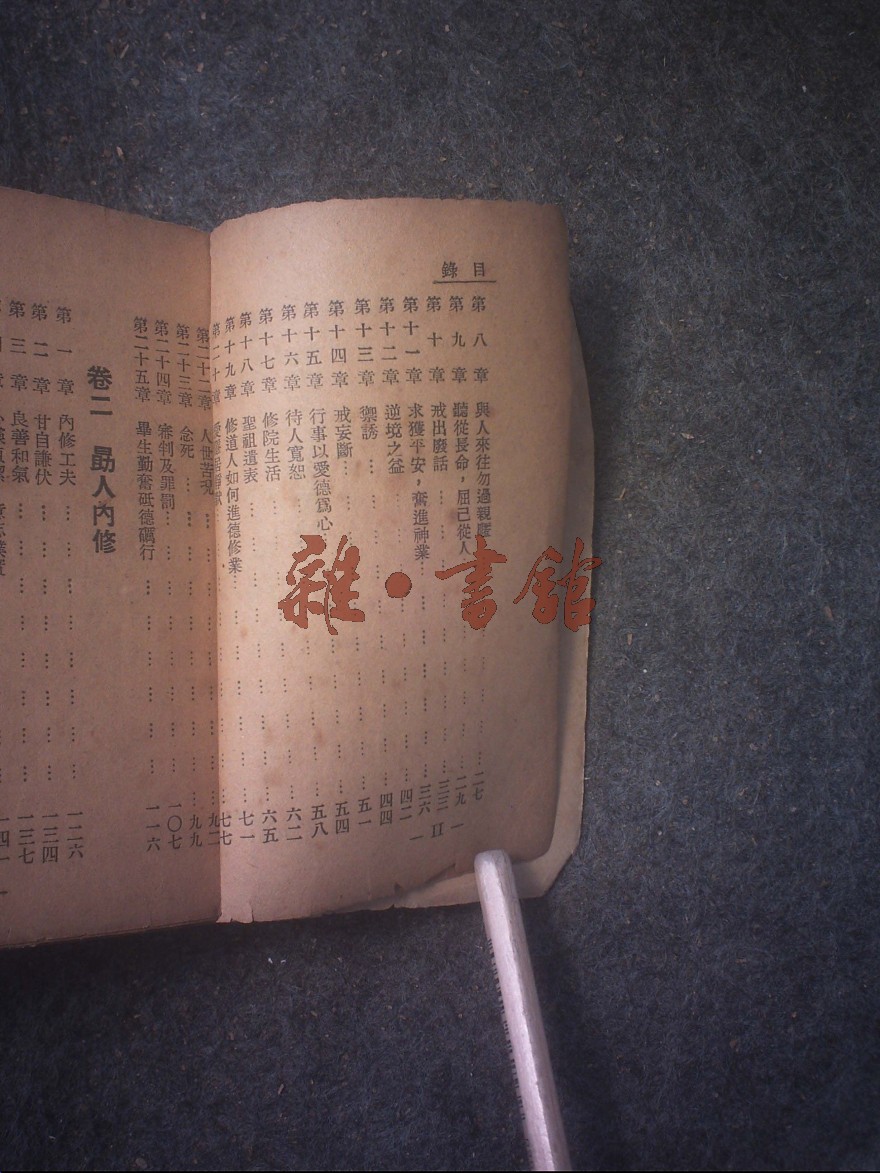 目錄
第八章 與人來往勿過親
第九章 聽從長命，屈己從人 二九
第十章 戒出廢話 三三
第十一章 求獲平安，奮進神業 三六
第十二章 逆境之益 四二
第十三章 禦誘 四四
第十四章 戒妄斷 五一
第十五章 行事以愛德爲心 五四
第十六章 待人寬恕 五八
第十七章 修院生活 六二
第十八章 聖祖遺表 六五
第十九章 修道人如何進德修業 七一
第二十章 七七
第二十二章 人世苦況 九二
第二十三章 念死 九九
第二十四章 審判及罪罰 一〇七
第二十五章 畢生勤奮砥德礪行 一一六
卷二 勗人內修
第一章 內修工夫 一二六
第二章 甘自謙伏 一三四
第三章 良善和氣 一三七
一四一
— II —
雜·書館